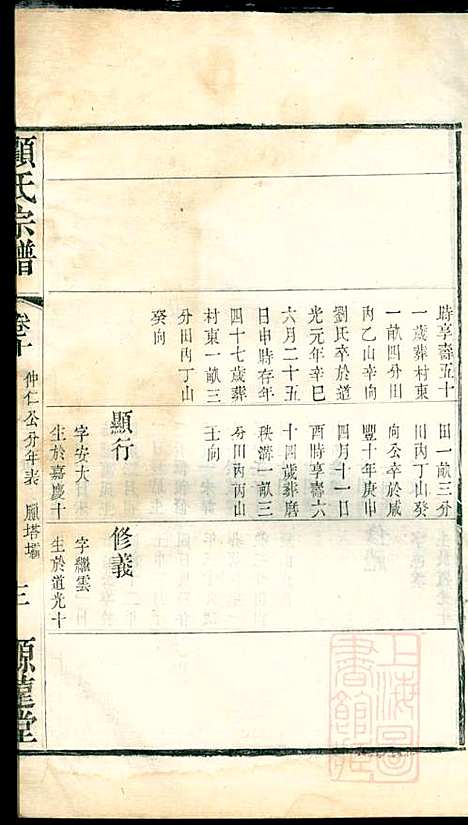 時享壽五十
一歲葬村東
一畝四分田
丙乙山辛向
劉氏卒於道
光元年辛巳
六月二十五
日申時存年
四十七歲葬
村東一畝三
分田丙丁山
癸向
田一畝三分
田丙丁山癸
向公幸於咸
豐十年庚申
四月十一日
酉時享壽六
十四歲葬磨
秧溝一畝三
分田丙丙山
壬向
顯行
字安大
生於嘉慶十
修義
字繼雲
生於道光十
顧氏宗譜
卷十
仲仁公分年表
雁塔壩
三
源蓬堂
上海圖書館藏